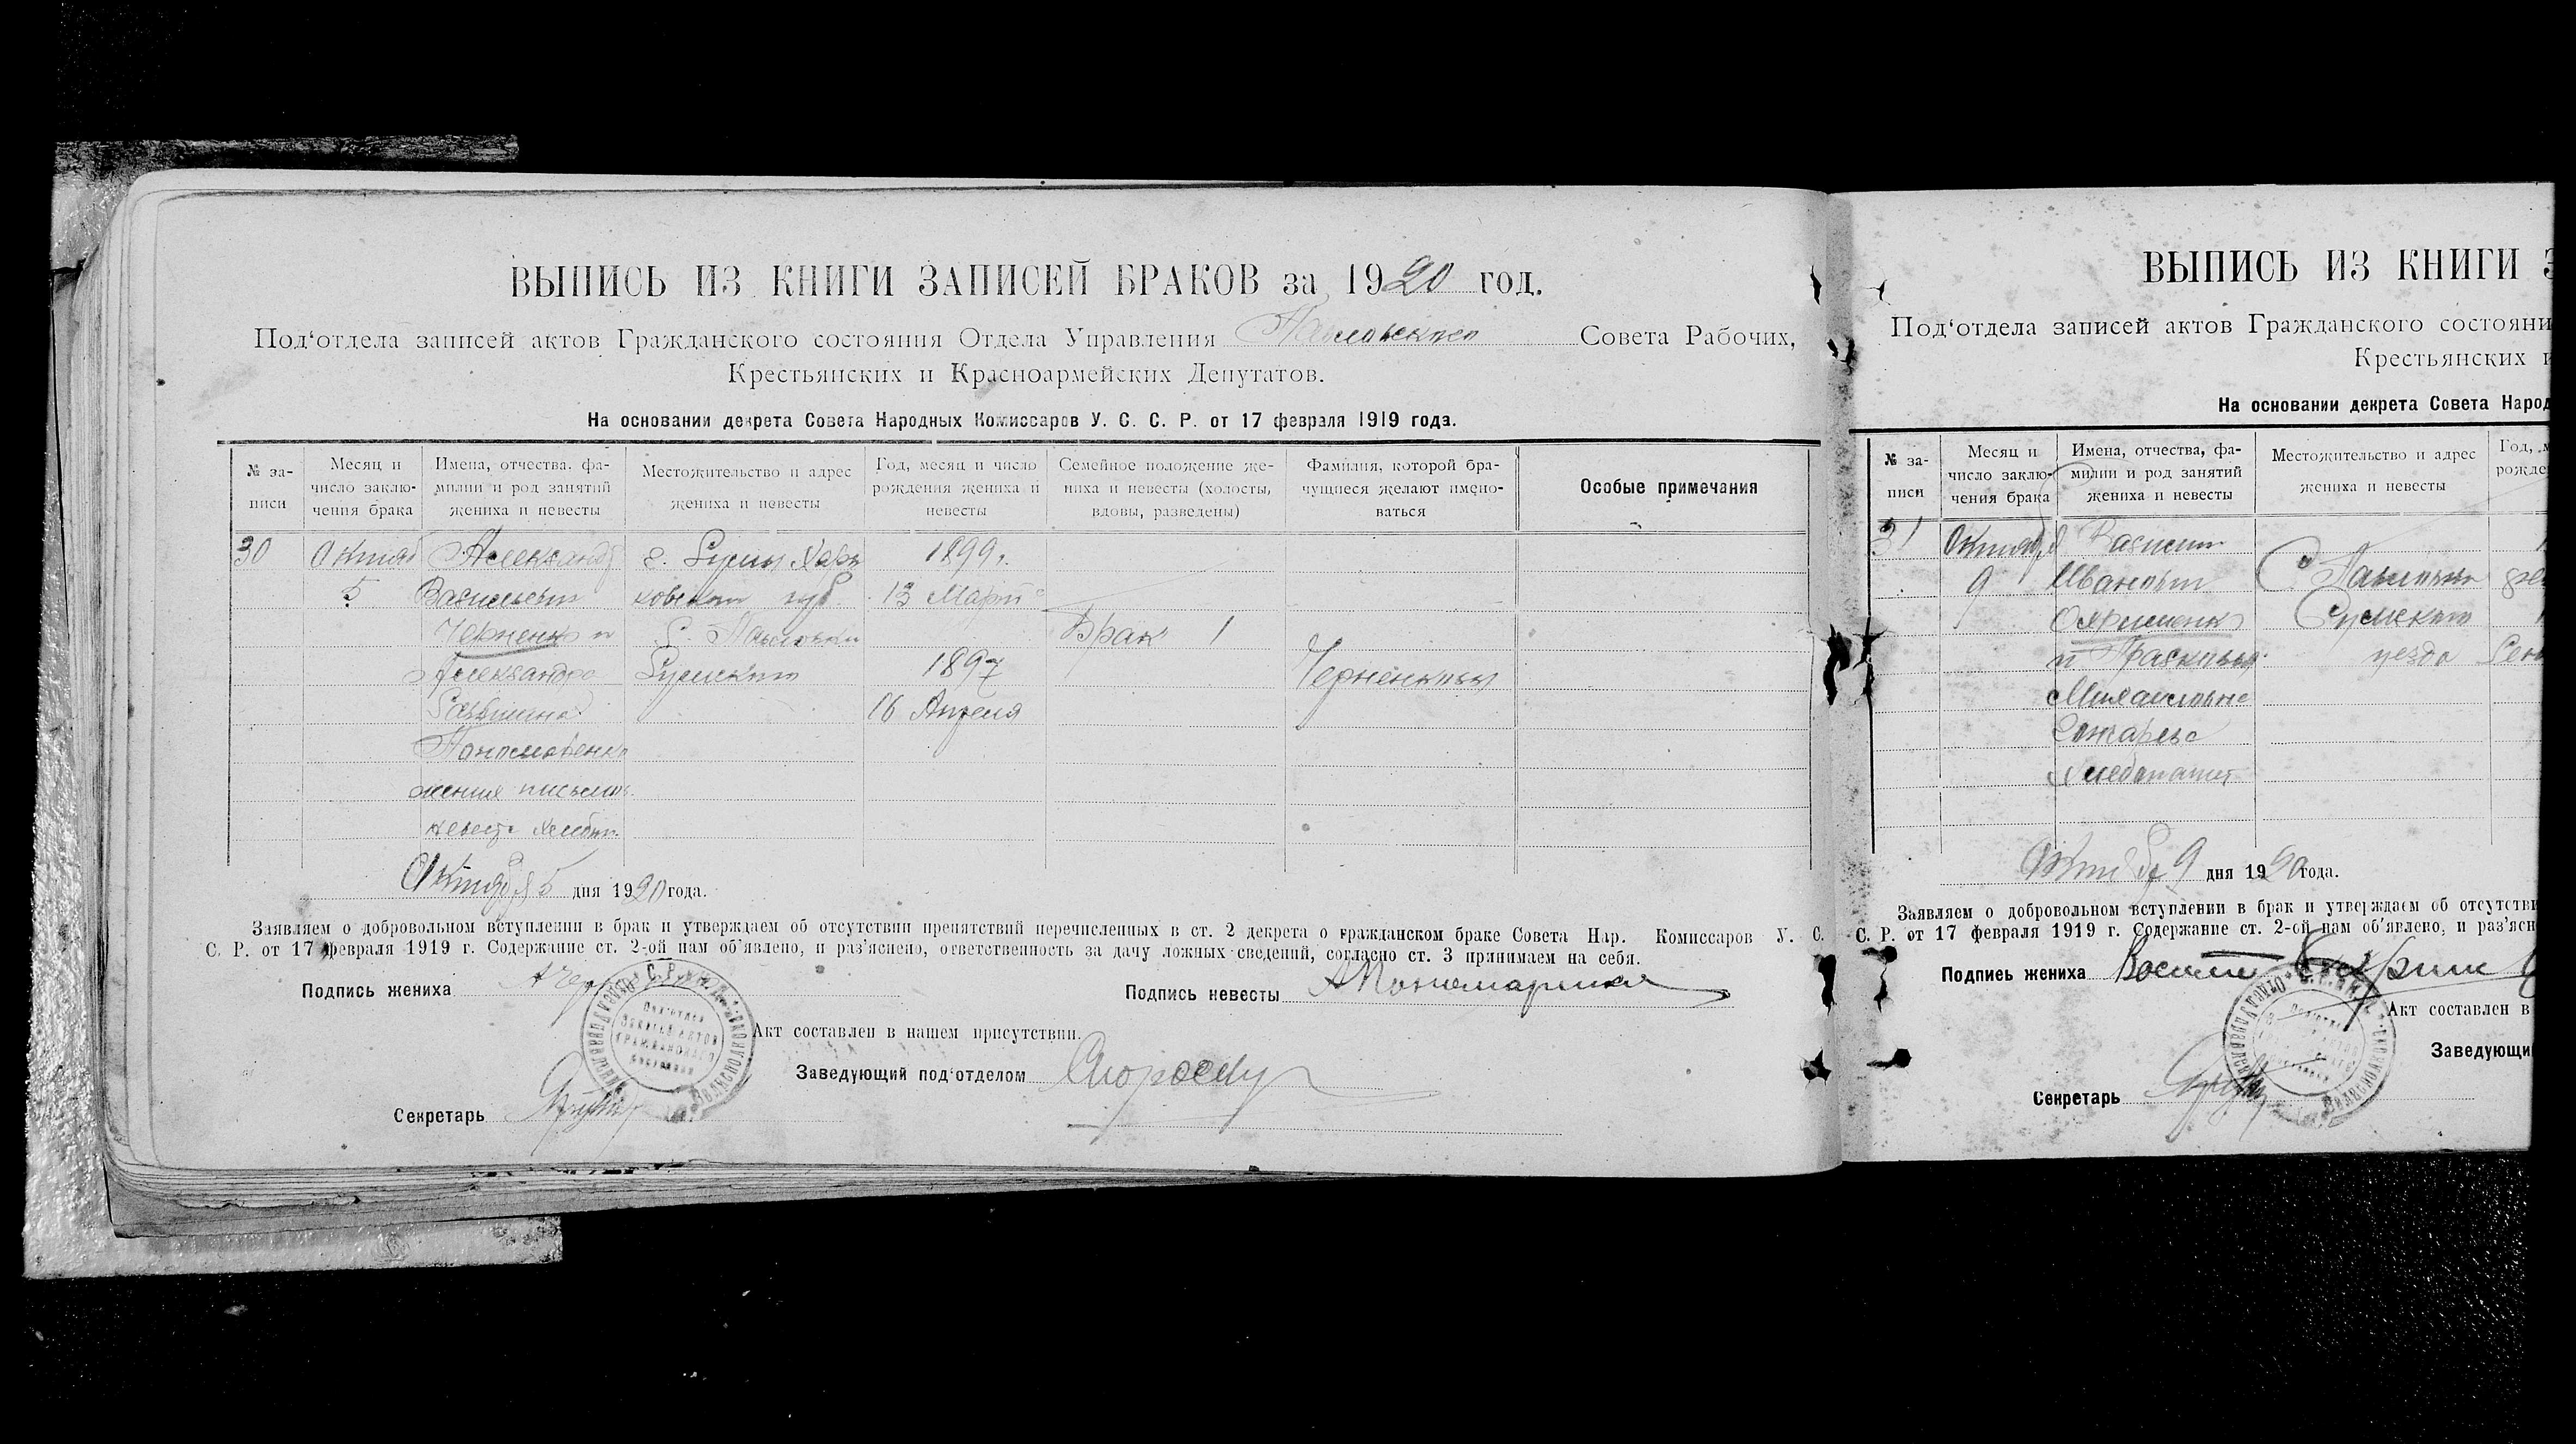 ВЫПИСЬ ИЗ КНИГИ ЗАПИСЕЙ БРАКОВ за 1920 год.
Под‘отдела записей актов Гражданского состояния Отдела Управления Совета Рабочих,
Крестьянских и Красноармейских Депутатов.
На основании декрета Совета Народных Комиссаров У. С. С. Р. от 17 февраля 1919 года.
№ за-
писи
Месяц и
число заклю-
чения брака
Имена, отчества, фа-
милии и род занятий
жениха и невесты
Местожительство и адрес
жениха и невесты
Год, месяц и число
рождения жениха и
невесты
Семейное положение же-
ниха и невесты (холосты,
вдовы, разведены)
Фамилия, которой бра-
чущиеся желают имено-
ваться
Особые примечания
30
Октяб
5
Александр
Васильевич
Черненко и
Александра
Саввишна
Пономаренко
жених письмов.
невеста хлебоп.
г. Сумы Харь
ковской губ.
с. Павловки
Сумского
1899
13 Март
1897
16 Апреля
Брак 1
Черненковы
Октября 5 дня 1920 года.
Заявляем о добровольном вступлении в брак и утверждаем об отсутствии препятствий перечисленных в ст. 2 декрета о гражданском браке Совета Нар. Комиссаров У. С.
С. Р. от 17 февраля 1919 г. Содержание ст. 2-ой нам об‘явлено, и раз‘яснено, ответственность за дачу ложных сведений, согласно ст. 3 принимаем на себя.
Подпись жениха
Подпись невесты
Акт составлен в нашем присутствии.
Заведующий под‘отделом
Секретарь
ВЫПИСЬ ИЗ КНИГИ
Под‘отдела записей актов Гражданского состояни
Крестьянских
На основании декрета Совета Народ
№ за-
писи
Месяц и
число заклю-
чения брака
Имена, отчества, фа-
милии и род занятий
жениха и невесты
Местожительство и адрес
жениха и невесты
Год, м
рожде
31
Октября
9
Василий
Иванович
и Прасковья
Михайловна
Хлебопашец
С Павловки
Сумского
уезда
9 дня 1920 года.
Заявляем о добровольном вступлении в брак и утверждаем об отсутстви
С. Р. от 17 февраля 1919 г. Содержание ст. 2-ой нам об‘явлено, и раз‘ясн
Подпись жениха
Акт составлен в
Заведующи
Секретарь